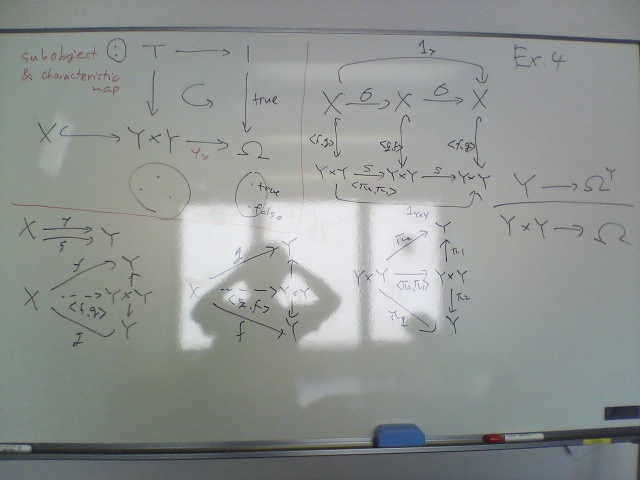 subobject
& characteristic
map
T → 1
true
X ↪ Y×Y → Ω
χx
true
false
1x
X σ→ X σ→ X
<f,g> <g,f> <f,g>
Y×Y s→ Y×Y s→ Y×Y
<π2,π1>
1Y×Y
Ex. 4
Y → Ω^Y
Y×Y → Ω
X ⇉ Y
f
g
X
f
Y
Y×Y
<f,g>
g
Y
X
g
Y
Y×Y
<g,f>
f
Y
Y×Y
π2
Y
<π2,π1>
Y×Y
π1
π2
π1
Y